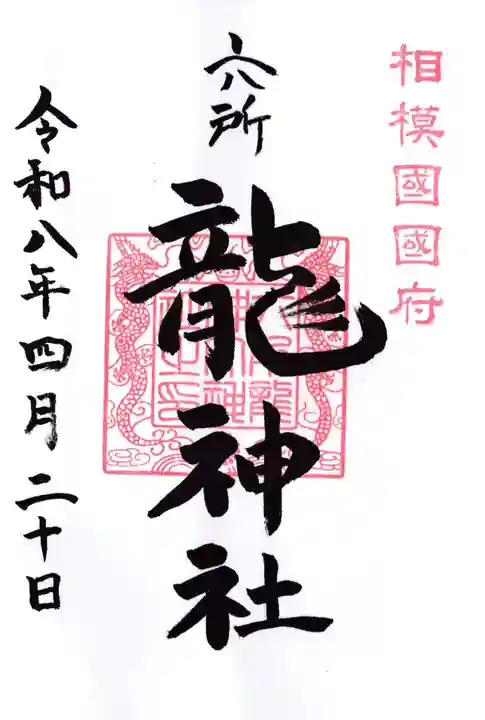 相模國國府
六所
龍神社
令和八年四月二十日